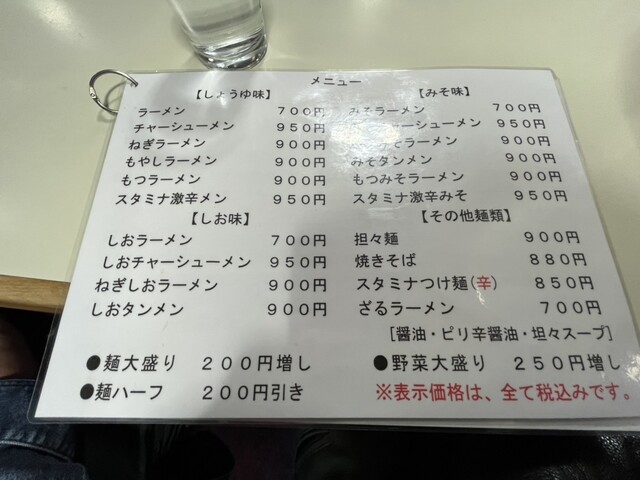 メニュー
【しょうゆ味】
ラーメン 700円
チャーシューメン 950円
ねぎラーメン 900円
もやしラーメン 900円
もつラーメン 900円
スタミナ激辛メン 950円
【しお味】
しおラーメン 700円
しおチャーシューメン 950円
ねぎしおラーメン 900円
しおタンメン 900円
【みそ味】
みそラーメン 700円
ーシューメン 950円
そラーメン 900円
みそタンメン 900円
もつみそラーメン 900円
スタミナ激辛みそ 950円
【その他麺類】
担々麺 900円
焼きそば 880円
スタミナつけ麺(辛) 850円
ざるラーメン 700円
[醤油・ピリ辛醤油・坦々スープ]
●麺大盛り 200円増し
●野菜大盛り 250円増し
●麺ハーフ 200円引き
※表示価格は、全て税込みです。